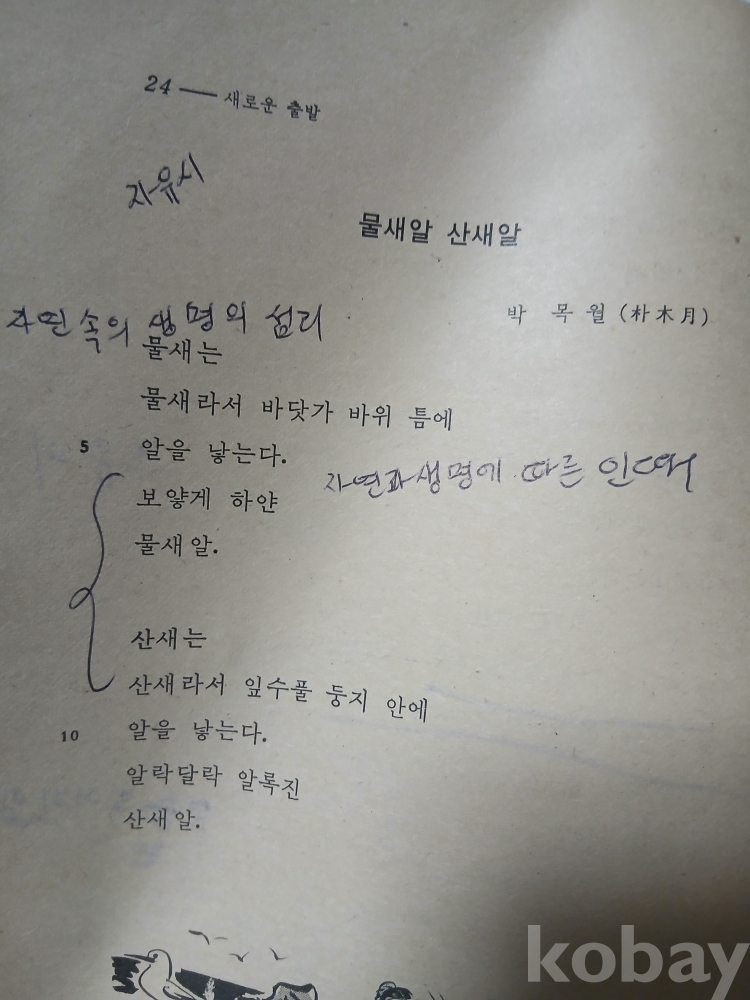 24 — 새로운 출발
자유시
물새알 산새알
박 목 월 (朴木月)
자연 속의 생명의 섭리
물새는
물새라서 바닷가 바위 틈에
5 알을 낳는다.
자연과 생명에 따른
보얗게 하얀
물새알.
산새는
산새라서 잎수풀 둥지 안에
10 알을 낳는다.
알락달락 알록진
산새알.
kobay